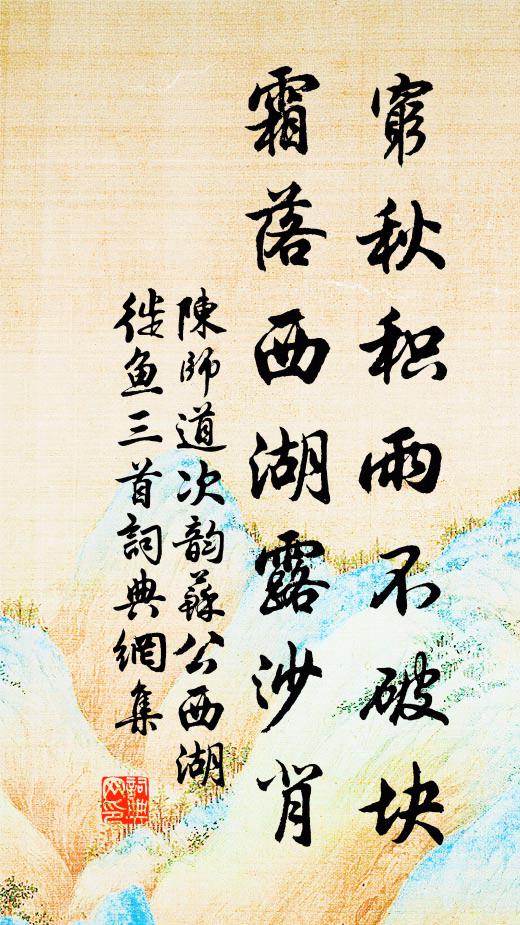 窮秋积雨不破块
霜落西湖露沙背
陳師道次韵蘇公西湖
徙魚三首詞典網集
詞典網印